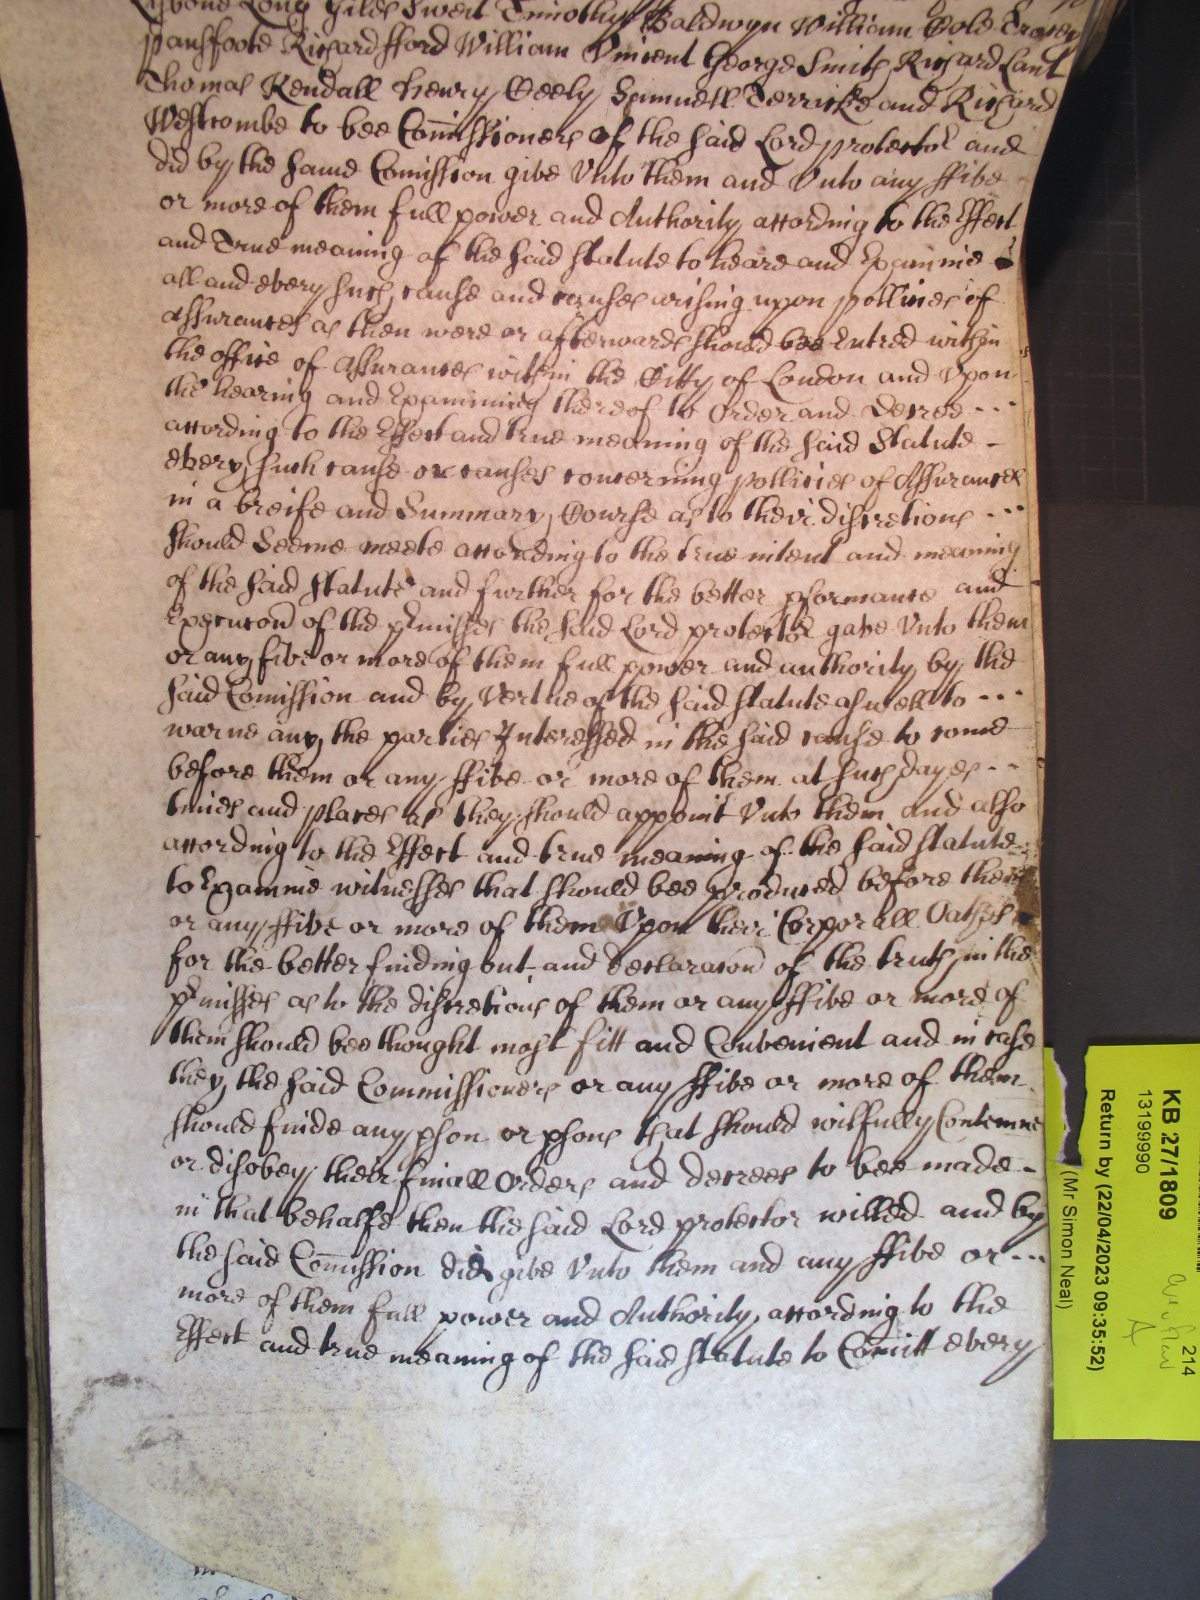 Lisbone Long Giles Sweit Timothy Baldwyn William Cole Tracey
pansfoote Richard fford William Vincent George Smith Richard Lant
Thomas Kendall Henry Seely Samuell Terricke and Richard
Westcombe to bee Comissioners of the said Lord protector and
did by the same Comission give Unto them and Unto any ffive
or more of them full power and Authority according to the Effect
and True meaning of the said Statute to heare and Examine
all and every such cause and causes arising upon pollicies of
Assurances as then were or afterwards should bee Entred within
the office of Assurances within the Citty of London and Upon
the hearing and Examining thereof to Order and Decree ...
according to the Effect and true meaning of the said Statute -
every such cause or causes concerning pollicies of Assurances
in a breife and Summary Course as to their discretions ...
should Seeme meete according to the true intent and meaning
of the said Statute and further for the better pformance and
Execucon of the pmisses the said Lord protector gave Unto them
or any five or more of them full power and authority by the
said Comission and by Vertue of the said Statute aswell to ...
warne any the parties Interessed in the said cause to come
before them or any ffive or more of them at such dayes ..
times and places as they should appoint Unto them and also
according to the Effect and true meaning of the said Statute
to Examine witnesses that should bee produced before them
or any ffive or more of them Upon their Corporall Oathes
for the better finding out and declaracon of the truth in the
pmisses as to the discretions of them or any ffive or more of
them should bee thought most fitt and Convenient and in case
they the said Commissioners or any ffive or more of them
should finde any pson or psons that should wilfully Contemne
or disobey their finall Orders and decrees to bee made -
in that behalfe then the said Lord protector willed and by
the said Comission did give Unto them and any ffive or ...
more of them full power and Authority according to the
Effect and true meaning of the said Statute to Comitt every
KB 27/1809
13199990
Return by (22/04/2023 09:35:52)
(Mr Simon Neal)
214
A